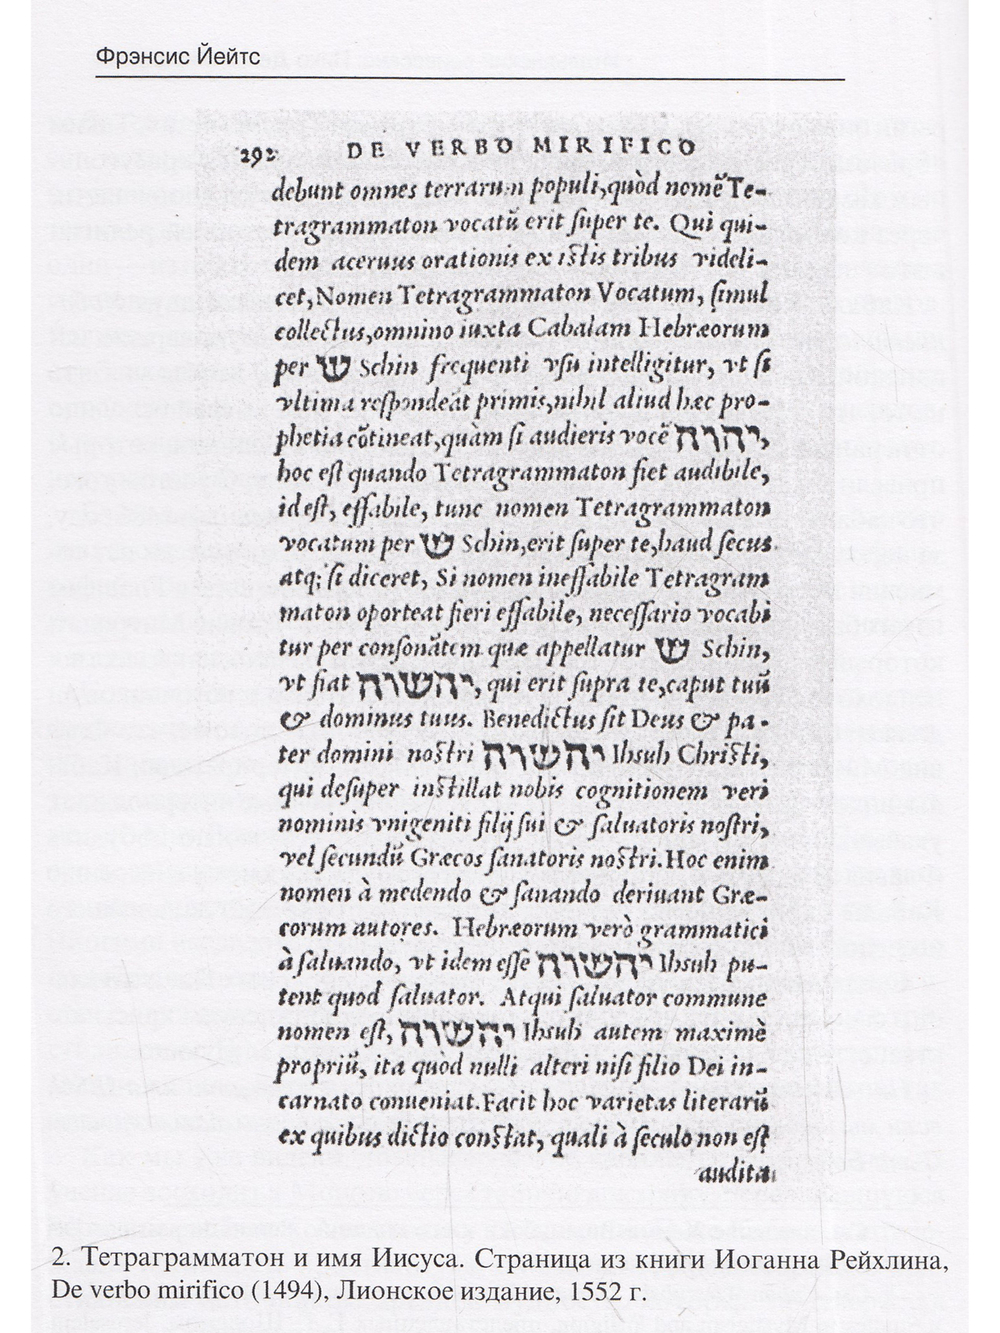 Фрэнсис Йейтс
292 DE VERBO MIRIFICO
debunt omnes terrarum populi, quòd nomẽ Te-
tragrammaton vocatũ erit super te. Qui qui-
dem aceruus orationis ex istis tribus videli-
cet, Nomen Tetragrammaton Vocatum, simul
collectus, omnino iuxta Cabalam Hebræorum
per ש Schin frequenti vsu intelligitur, vt si
vltima respondeãt primis, nihil aliud hæc pro-
phetia cõtineat, quàm si audieris vocẽ יהוה,
hoc est quando Tetragrammaton fiet audibile,
id est, effabile, tunc nomen Tetragrammaton
vocatum per ש Schin, erit super te, haud secus
atq; si diceret, Si nomen ineffabile Tetragram
maton oporteat fieri effabile, necessario vocabi
tur per consonãtem quæ appellatur ש Schin,
vt fiat יהשוה, qui erit supra te, caput tuũ
& dominus tuus. Benedictus sit Deus & pa-
ter domini nostri יהשוה Ihsuh Christi,
qui desuper instillat nobis cognitionem veri
nominis vnigeniti filij sui & saluatoris nostri,
vel secundũ Græcos sanatoris nostri. Hoc enim
nomen à medendo & sanando deriuant Græ-
corum autores. Hebræorum verò grammatici
à saluando, vt idem esse יהשוה Ihsuh pu-
tent quod saluator. Atqui saluator commune
nomen est, יהשוה Ihsuh autem maximè
propriũ, ita quòd nulli alteri nisi filio Dei in-
carnato conueniat. Facit hoc varietas literarũ
ex quibus dictio constat, quali à seculo non est
audita
2. Тетраграмматон и имя Иисуса. Страница из книги Иоганна Рейхлина,
De verbo mirifico (1494), Лионское издание, 1552 г.